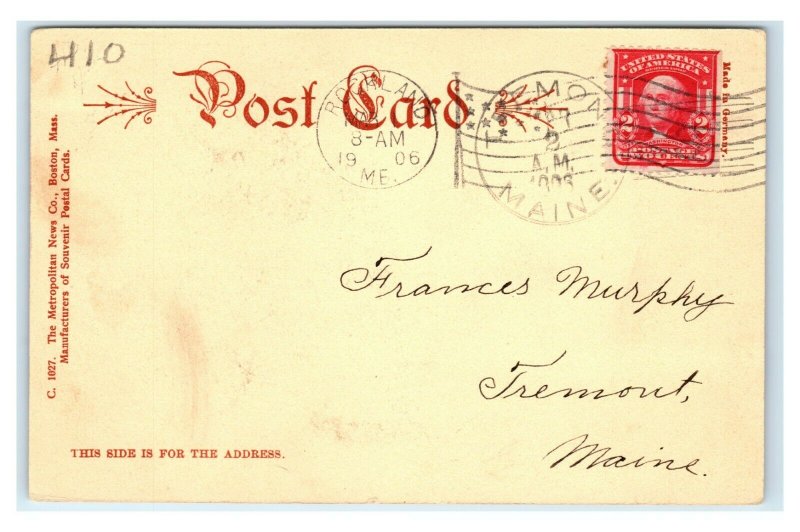 410
Post Card
ROCKLAND
8-AM
19 06
ME.
MON
A.M.
MAINE.
UNITED STATES
OF AMERICA
2 2
Made in Germany.
C. 1027. The Metropolitan News Co., Boston, Mass.
Manufacturers of Souvenir Postal Cards.
Frances Murphy
Tremont,
Maine.
THIS SIDE IS FOR THE ADDRESS.